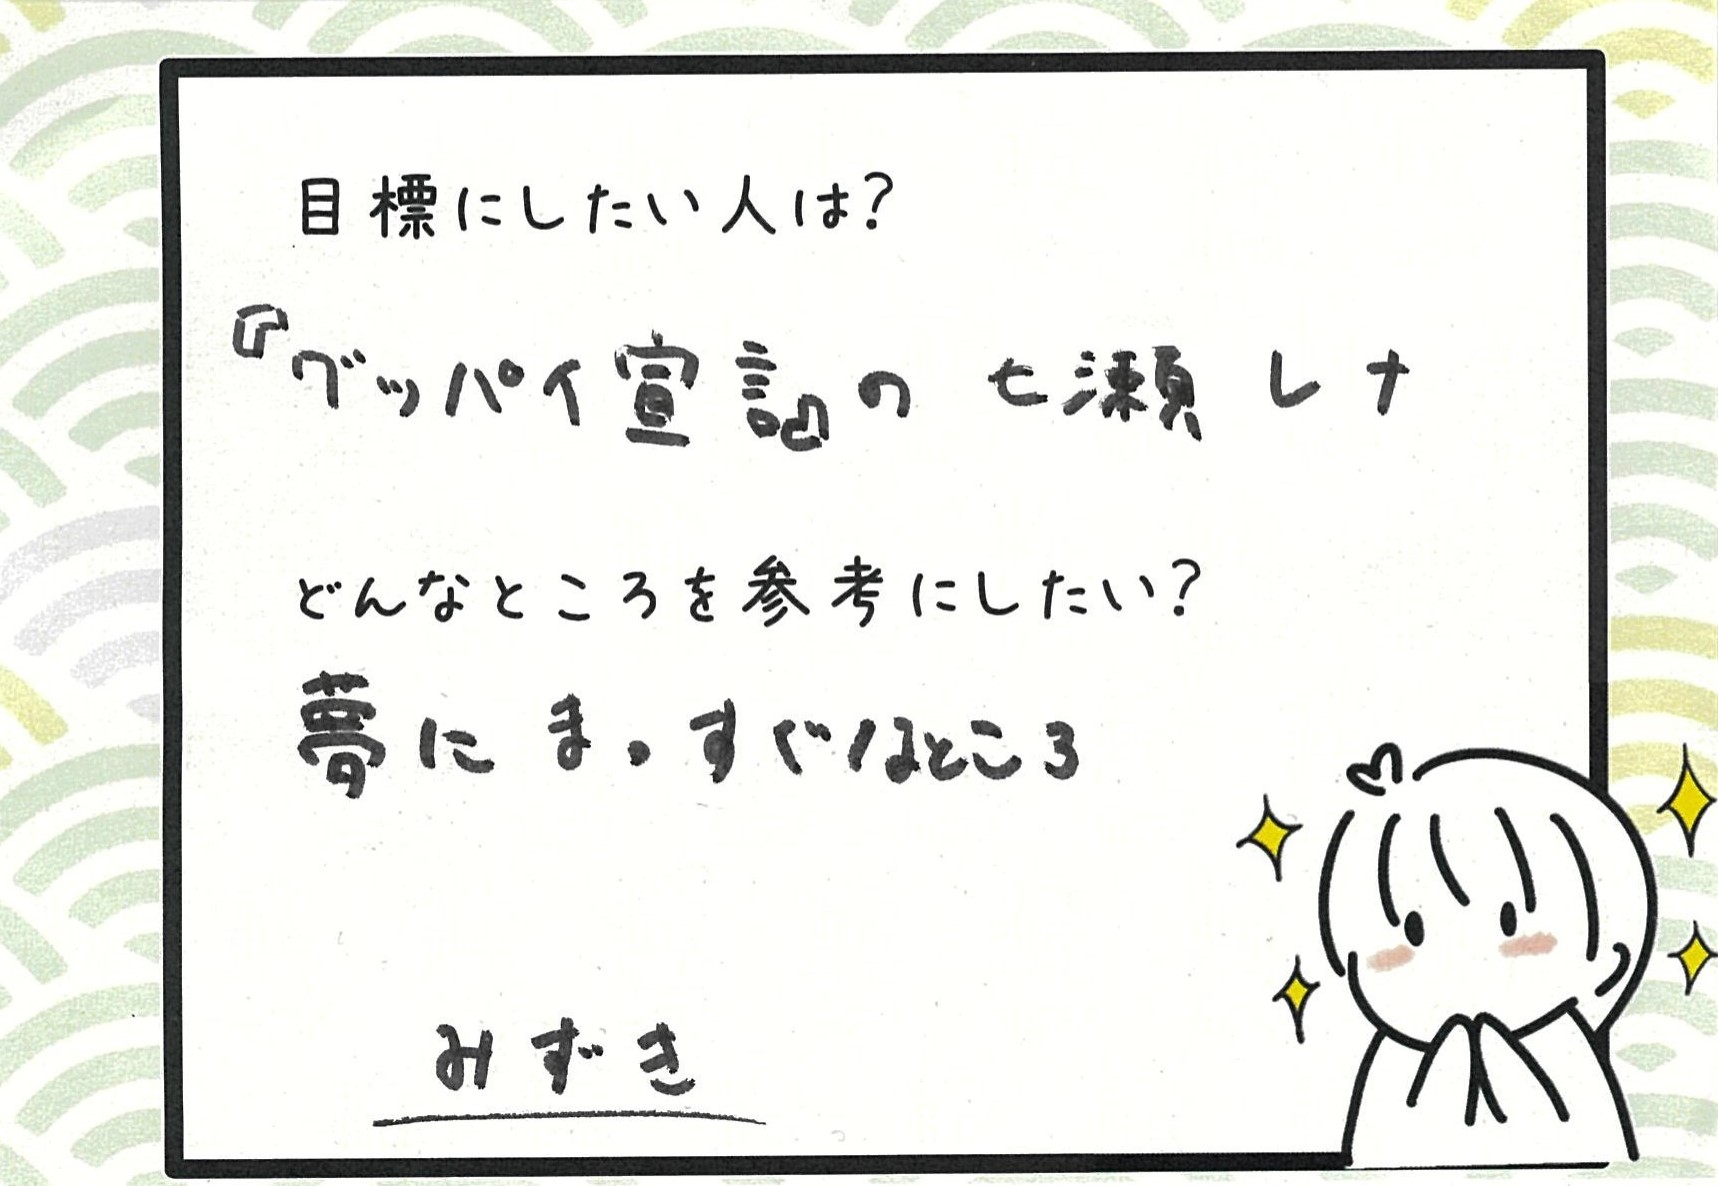 目標にしたい人は?
『グッバイ宣言』の 七瀬 レナ
どんなところを参考にしたい?
夢に まっすぐなところ
みずき